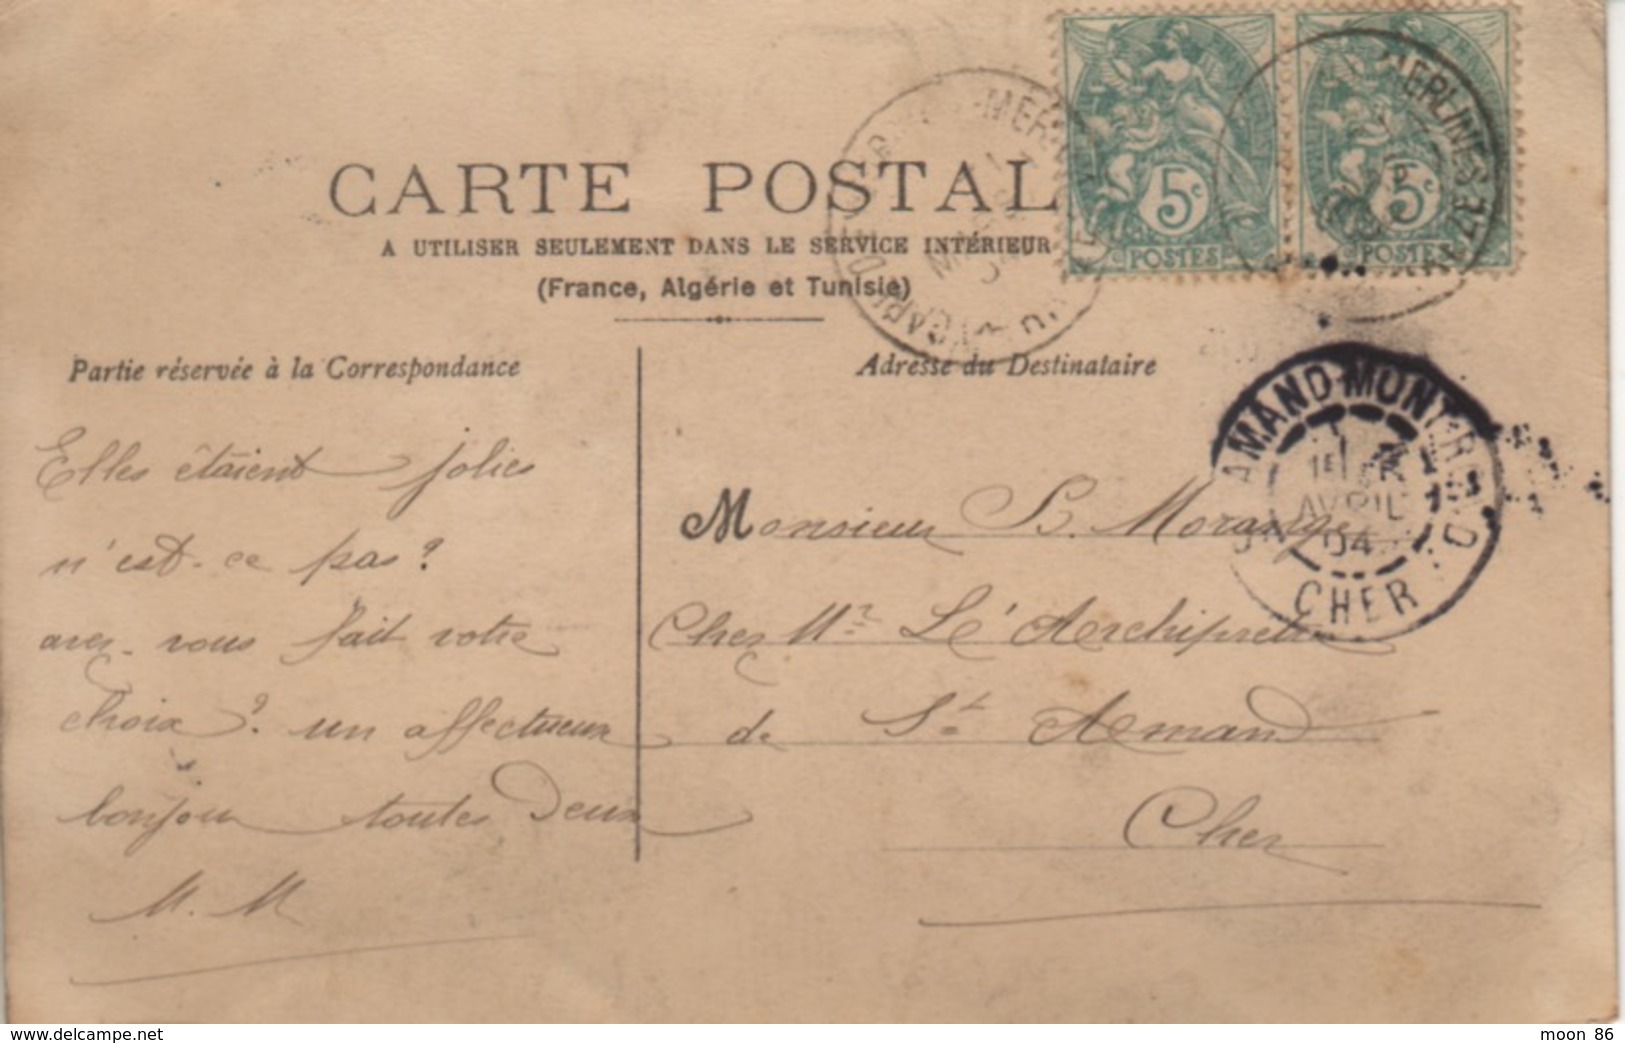 CARTE POSTAL
A UTILISER SEULEMENT DANS LE SERVICE INTÉRIEUR
(France, Algérie et Tunisie)
5c
POSTES
5c
POSTES
MERLINES
AMAND-MONT-ROND
1E
AVRIL
04
CHER
Partie réservée à la Correspondance
Elles étaient jolies
n'est-ce pas?
avez-vous fait votre
choix? un affectueux
bonjour toutes Deux
M. M
Adresse du Destinataire
Monsieur B. Morange
Chez Mr L'Archiprêtre
de St Amand
Cher
delcampe.net
moon 86